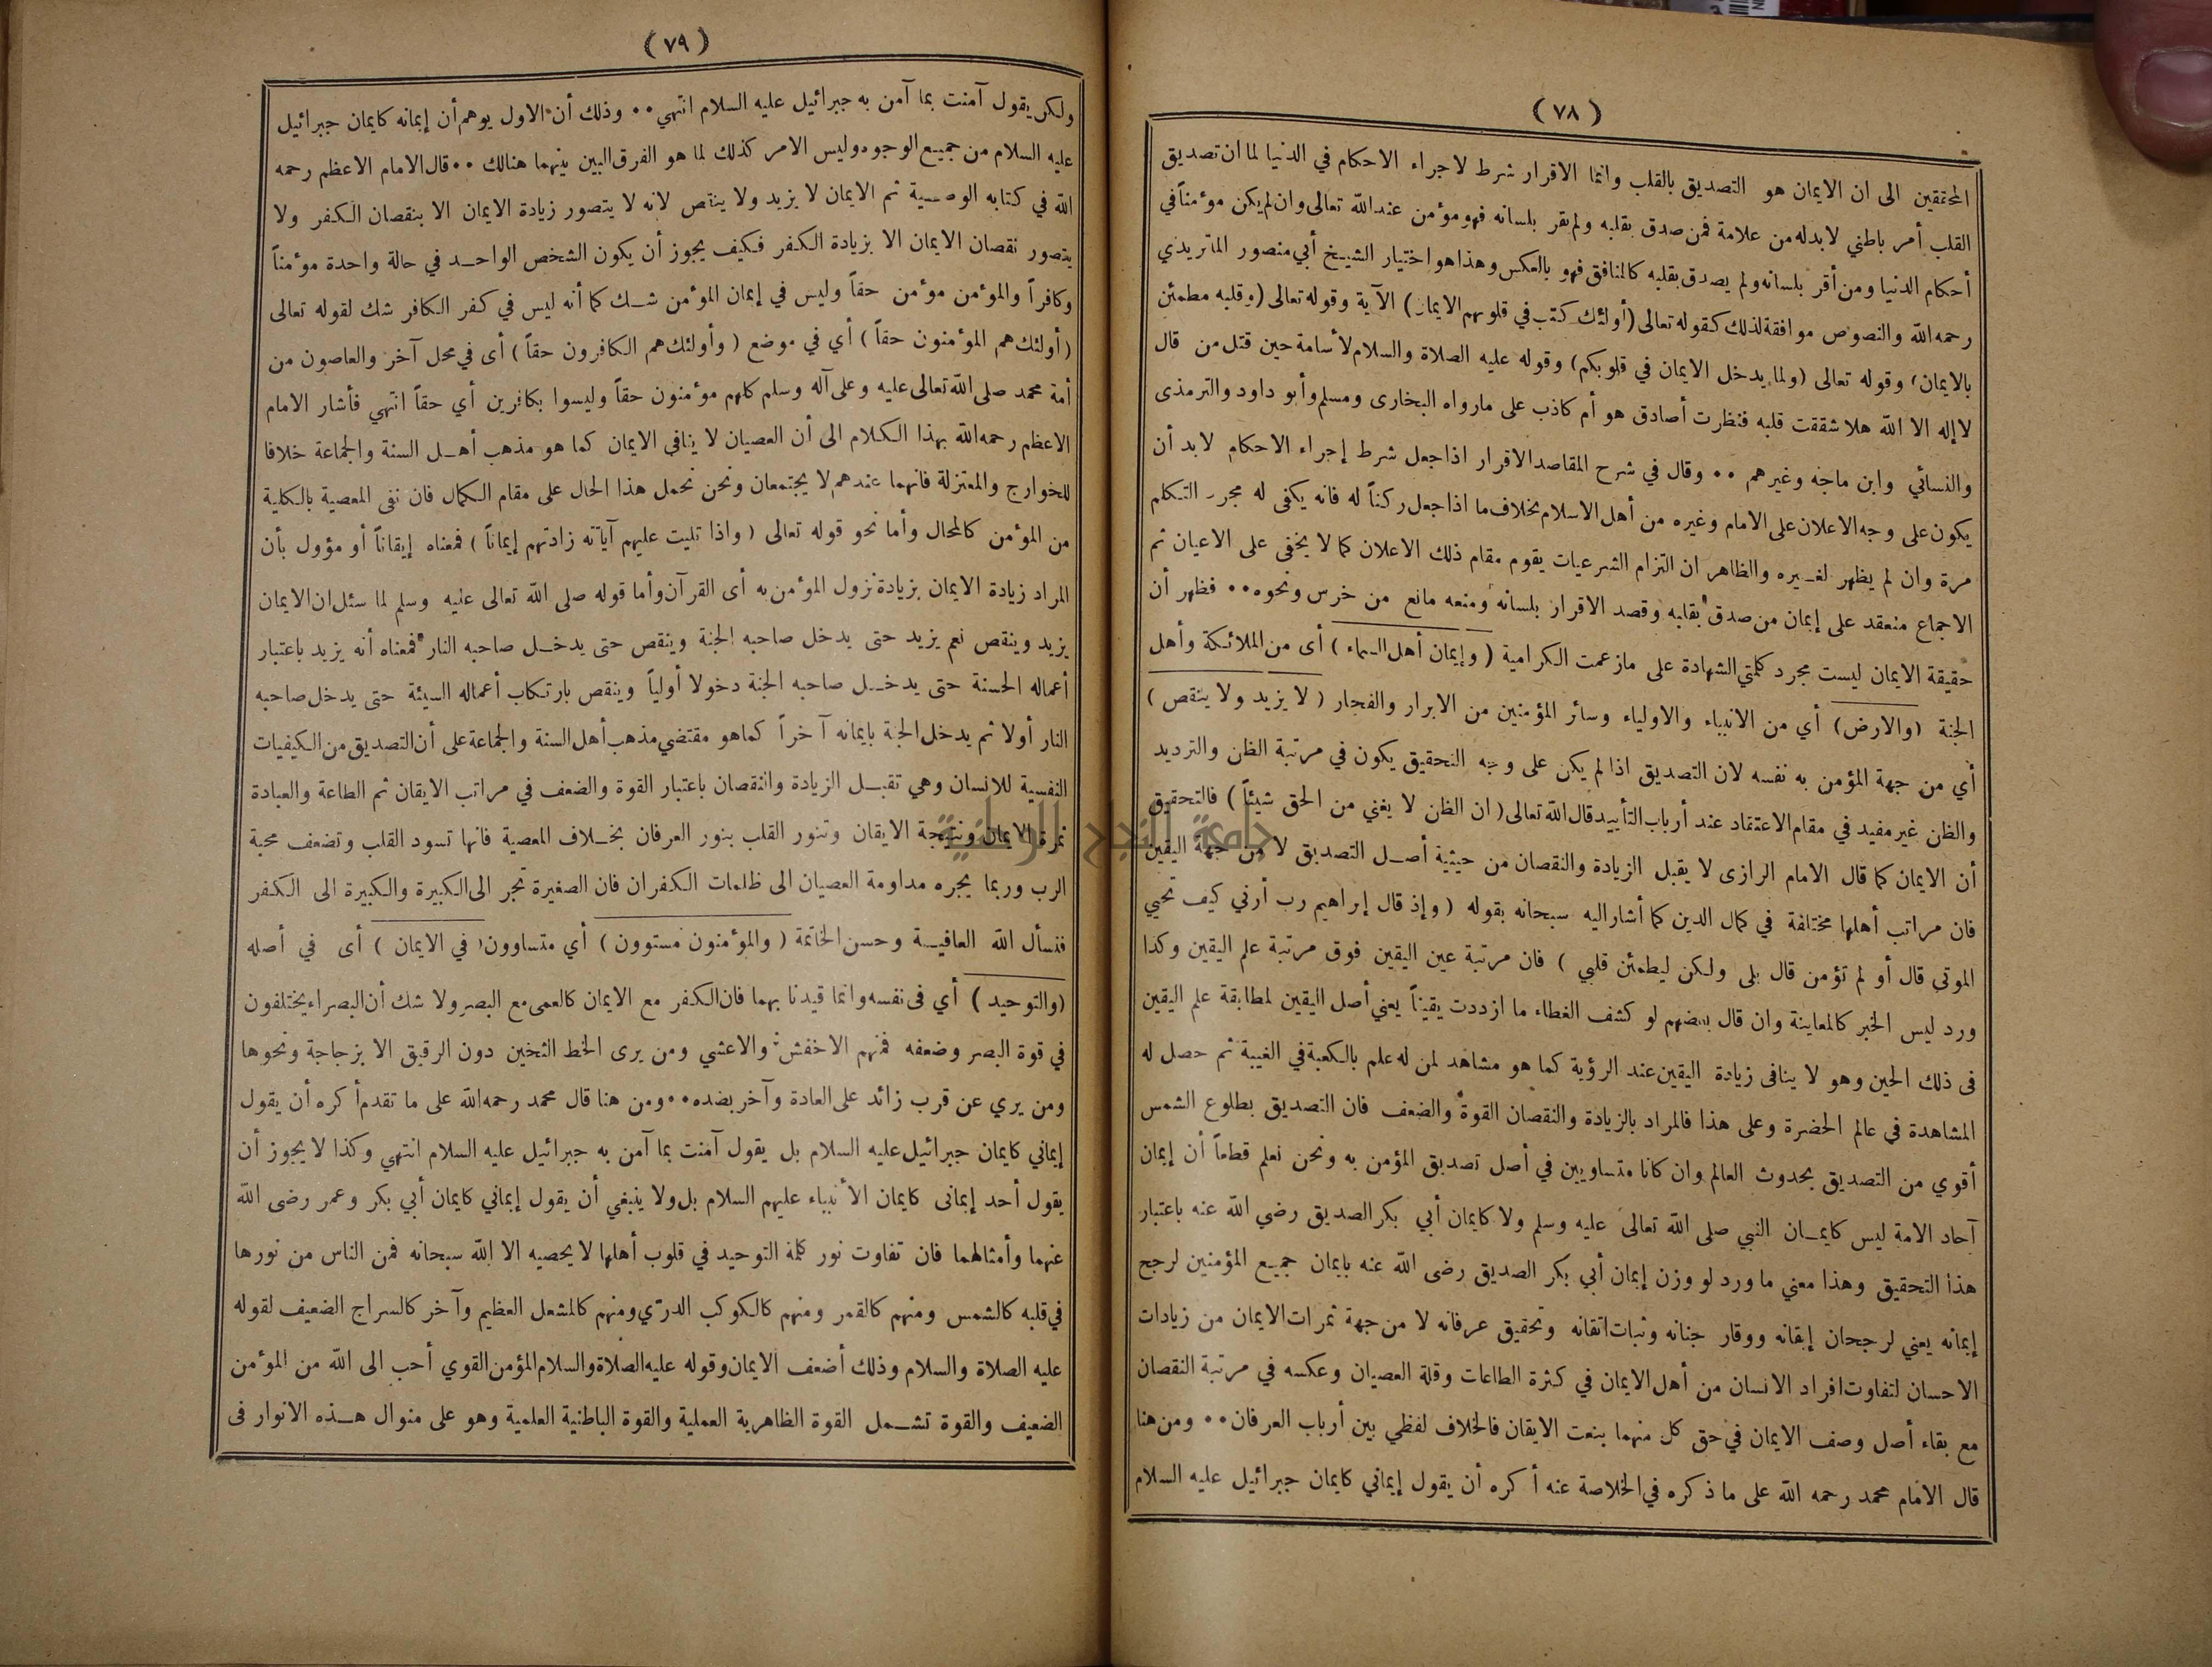 (٧٨)
المحققين الى ان الايمان هو التصديق بالقلب وانما الاقرار شرط لاجراء الاحكام في الدنيا لما ان تصديق
القلب أمر باطني لابد له من علامة فمن صدق بقلبه ولم يقر بلسانه فهو مؤمن عند الله تعالى وان لم يكن مؤمناً في
أحكام الدنيا ومن أقر بلسانه ولم يصدق بقلبه كالمنافق فهو بالعكس وهذا هو اختيار الشيخ أبي منصور الماتريدي
رحمه الله والنصوص موافقة لذلك كقوله تعالى (أولئك كتب في قلوبهم الايمان) الآية وقوله تعالى (وقلبه مطمئن
بالايمان) وقوله تعالى (ولما يدخل الايمان في قلوبكم) وقوله عليه الصلاة والسلام لأسامة حين قتل من قال
لا إله الا الله هلا شققت قلبه فنظرت أصادق هو أم كاذب على مارواه البخارى ومسلم وأبو داود والترمذى
والنسائي وابن ماجه وغيرهم ٠٠ وقال في شرح المقاصد الاقرار اذا جعل شرط إجراء الاحكام لابد أن
يكون على وجه الاعلان على الامام وغيره من أهل الاسلام بخلاف ما اذا جعل ركناً له فانه يكفى له مجرد التكلم
مرة وان لم يظهر لغيره والظاهر ان التزام الشرعيات يقوم مقام ذلك الاعلان كما لا يخفى على الاعيان ثم
الاجماع منعقد على إيمان من صدق بقلبه وقصد الاقرار بلسانه ومنعه مانع من خرس ونحوه ٠٠ فظهر أن
حقيقة الايمان ليست مجرد كلمتي الشهادة على مازعمت الكرامية (وإيمان أهل السماء) أى من الملائكة وأهل
الجنة (والارض) أي من الانبياء والاولياء وسائر المؤمنين من الابرار والفجار (لا يزيد ولا ينقص)
أي من جهة المؤمن به نفسه لان التصديق اذا لم يكن على وجه التحقيق يكون في مرتبة الظن والترديد
والظن غير مفيد في مقام الاعتماد عند أرباب التأييد قال الله تعالى (ان الظن لا يغني من الحق شيئاً) فالتحقيق
أن الايمان كما قال الامام الرازى لا يقبل الزيادة والنقصان من حيثية أصل التصديق لا من جهة اليقين
فان مراتب أهلها مختلفة في كمال الدين كما أشار اليه سبحانه بقوله (وإذ قال إبراهيم رب أرني كيف تحيي
الموتي قال أو لم تؤمن قال بلى ولكن ليطمئن قلبي) فان مرتبة عين اليقين فوق مرتبة علم اليقين وكذا
ورد ليس الخبر كالمعاينة وان قال بعضهم لو كشف الغطاء ما ازددت يقيناً يعني أصل اليقين لمطابقة علم اليقين
فى ذلك الحين وهو لا ينافى زيادة اليقين عند الرؤية كما هو مشاهد لمن له علم بالكعبة في الغيبة ثم حصل له
المشاهدة في عالم الحضرة وعلى هذا فالمراد بالزيادة والنقصان القوة والضعف فان التصديق بطلوع الشمس
أقوي من التصديق بحدوث العالم وان كانا متساويين في أصل تصديق المؤمن به ونحن نعلم قطعاً أن إيمان
آحاد الامة ليس كايمان النبي صلى الله تعالى عليه وسلم ولا كايمان أبي بكر الصديق رضي الله عنه باعتبار
هذا التحقيق وهذا معني ما ورد لو وزن إيمان أبي بكر الصديق رضى الله عنه بايمان جميع المؤمنين لرجح
إيمانه يعني لرجحان إيقانه ووقار جنانه وثبات اتقانه وتحقيق عرفانه لا من جهة ثمرات الايمان من زيادات
الاحسان لتفاوت افراد الانسان من أهل الايمان في كثرة الطاعات وقلة العصيان وعكسه في مرتبة النقصان
مع بقاء أصل وصف الايمان في حق كل منهما بنعت الايقان فالخلاف لفظي بين أرباب العرفان ٠٠ ومن هنا
قال الامام محمد رحمه الله على ما ذكره في الخلاصة عنه أكره أن يقول إيماني كايمان جبرائيل عليه السلام
(٧٩)
ولكن يقول آمنت بما آمن به جبرائيل عليه السلام انتهي ٠٠ وذلك أن الاول يوهم أن إيمانه كايمان جبرائيل
عليه السلام من جميع الوجوه وليس الامر كذلك لما هو الفرق البين بينهما هنالك ٠٠ قال الامام الاعظم رحمه
الله في كتابه الوصية ثم الايمان لا يزيد ولا ينقص لانه لا يتصور زيادة الايمان الا بنقصان الكفر ولا
يتصور نقصان الايمان الا بزيادة الكفر فكيف يجوز أن يكون الشخص الواحد في حالة واحدة مؤمناً
وكافراً والمؤمن مؤمن حقاً وليس في إيمان المؤمن شك كما أنه ليس في كفر الكافر شك لقوله تعالى
(أولئك هم المؤمنون حقاً) أي في موضع (وأولئك هم الكافرون حقاً) أى في محل آخر والعاصون من
أمة محمد صلى الله تعالى عليه وعلى آله وسلم كلهم مؤمنون حقاً وليسوا بكافرين أي حقاً انتهي فأشار الامام
الاعظم رحمه الله بهذا الكلام الى أن العصيان لا ينافي الايمان كما هو مذهب أهل السنة والجماعة خلافا
للخوارج والمعتزلة فانهما عندهم لا يجتمعان ونحن نحمل هذا الحال على مقام الكمال فان نفى المعصية بالكلية
من المؤمن كالمحال وأما نحو قوله تعالى (واذا تليت عليهم آياته زادتهم إيماناً) فمعناه إيقاناً أو مؤول بأن
المراد زيادة الايمان بزيادة نزول المؤمن به أى القرآن وأما قوله صلى الله تعالى عليه وسلم لما سئل ان الايمان
يزيد وينقص نعم يزيد حتى يدخل صاحبه الجنة وينقص حتى يدخل صاحبه النار فمعناه أنه يزيد باعتبار
أعماله الحسنة حتى يدخل صاحبه الجنة دخولا أولياً وينقص بارتكاب أعماله السيئة حتى يدخل صاحبه
النار أولا ثم يدخل الجنة بايمانه آخراً كما هو مقتضي مذهب أهل السنة والجماعة على أن التصديق من الكيفيات
النفسية للانسان وهي تقبل الزيادة والنقصان باعتبار القوة والضعف في مراتب الايقان ثم الطاعة والعبادة
ثمرة الايمان ونتيجة الايقان وتنور القلب بنور العرفان بخلاف المعصية فانها تسود القلب وتضعف محبة
الرب وربما يجره مداومة العصيان الى ظلمات الكفران فان الصغيرة تجر الى الكبيرة والكبيرة الى الكفر
فنسأل الله العافية وحسن الخاتمة (والمؤمنون مستوون) أي متساوون (في الايمان) أى في أصله
(والتوحيد) أي في نفسه وانما قيدنا بهما فان الكفر مع الايمان كالعمى مع البصر ولا شك أن البصراء يختلفون
في قوة البصر وضعفه فمنهم الاخفش والاعشي ومن يرى الخط الثخين دون الرقيق الا بزجاجة ونحوها
ومن يري عن قرب زائد على العادة وآخر بضده ٠٠ ومن هنا قال محمد رحمه الله على ما تقدم أكره أن يقول
إيماني كايمان جبرائيل عليه السلام بل يقول آمنت بما آمن به جبرائيل عليه السلام انتهي وكذا لا يجوز أن
يقول أحد إيمانى كايمان الأنبياء عليهم السلام بل ولا ينبغي أن يقول إيماني كايمان أبي بكر وعمر رضى الله
عنهما وأمثالهما فان تفاوت نور كلمة التوحيد في قلوب أهلها لا يحصيه الا الله سبحانه فمن الناس من نورها
في قلبه كالشمس ومنهم كالقمر ومنهم كالكوكب الدرّي ومنهم كالمشعل العظيم وآخر كالسراج الضعيف لقوله
عليه الصلاة والسلام وذلك أضعف الايمان وقوله عليه الصلاة والسلام المؤمن القوي أحب الى الله من المؤمن
الضعيف والقوة تشمل القوة الظاهرية العملية والقوة الباطنية العلمية وهو على منوال هذه الانوار فى
جامعة النجاح الوطنية